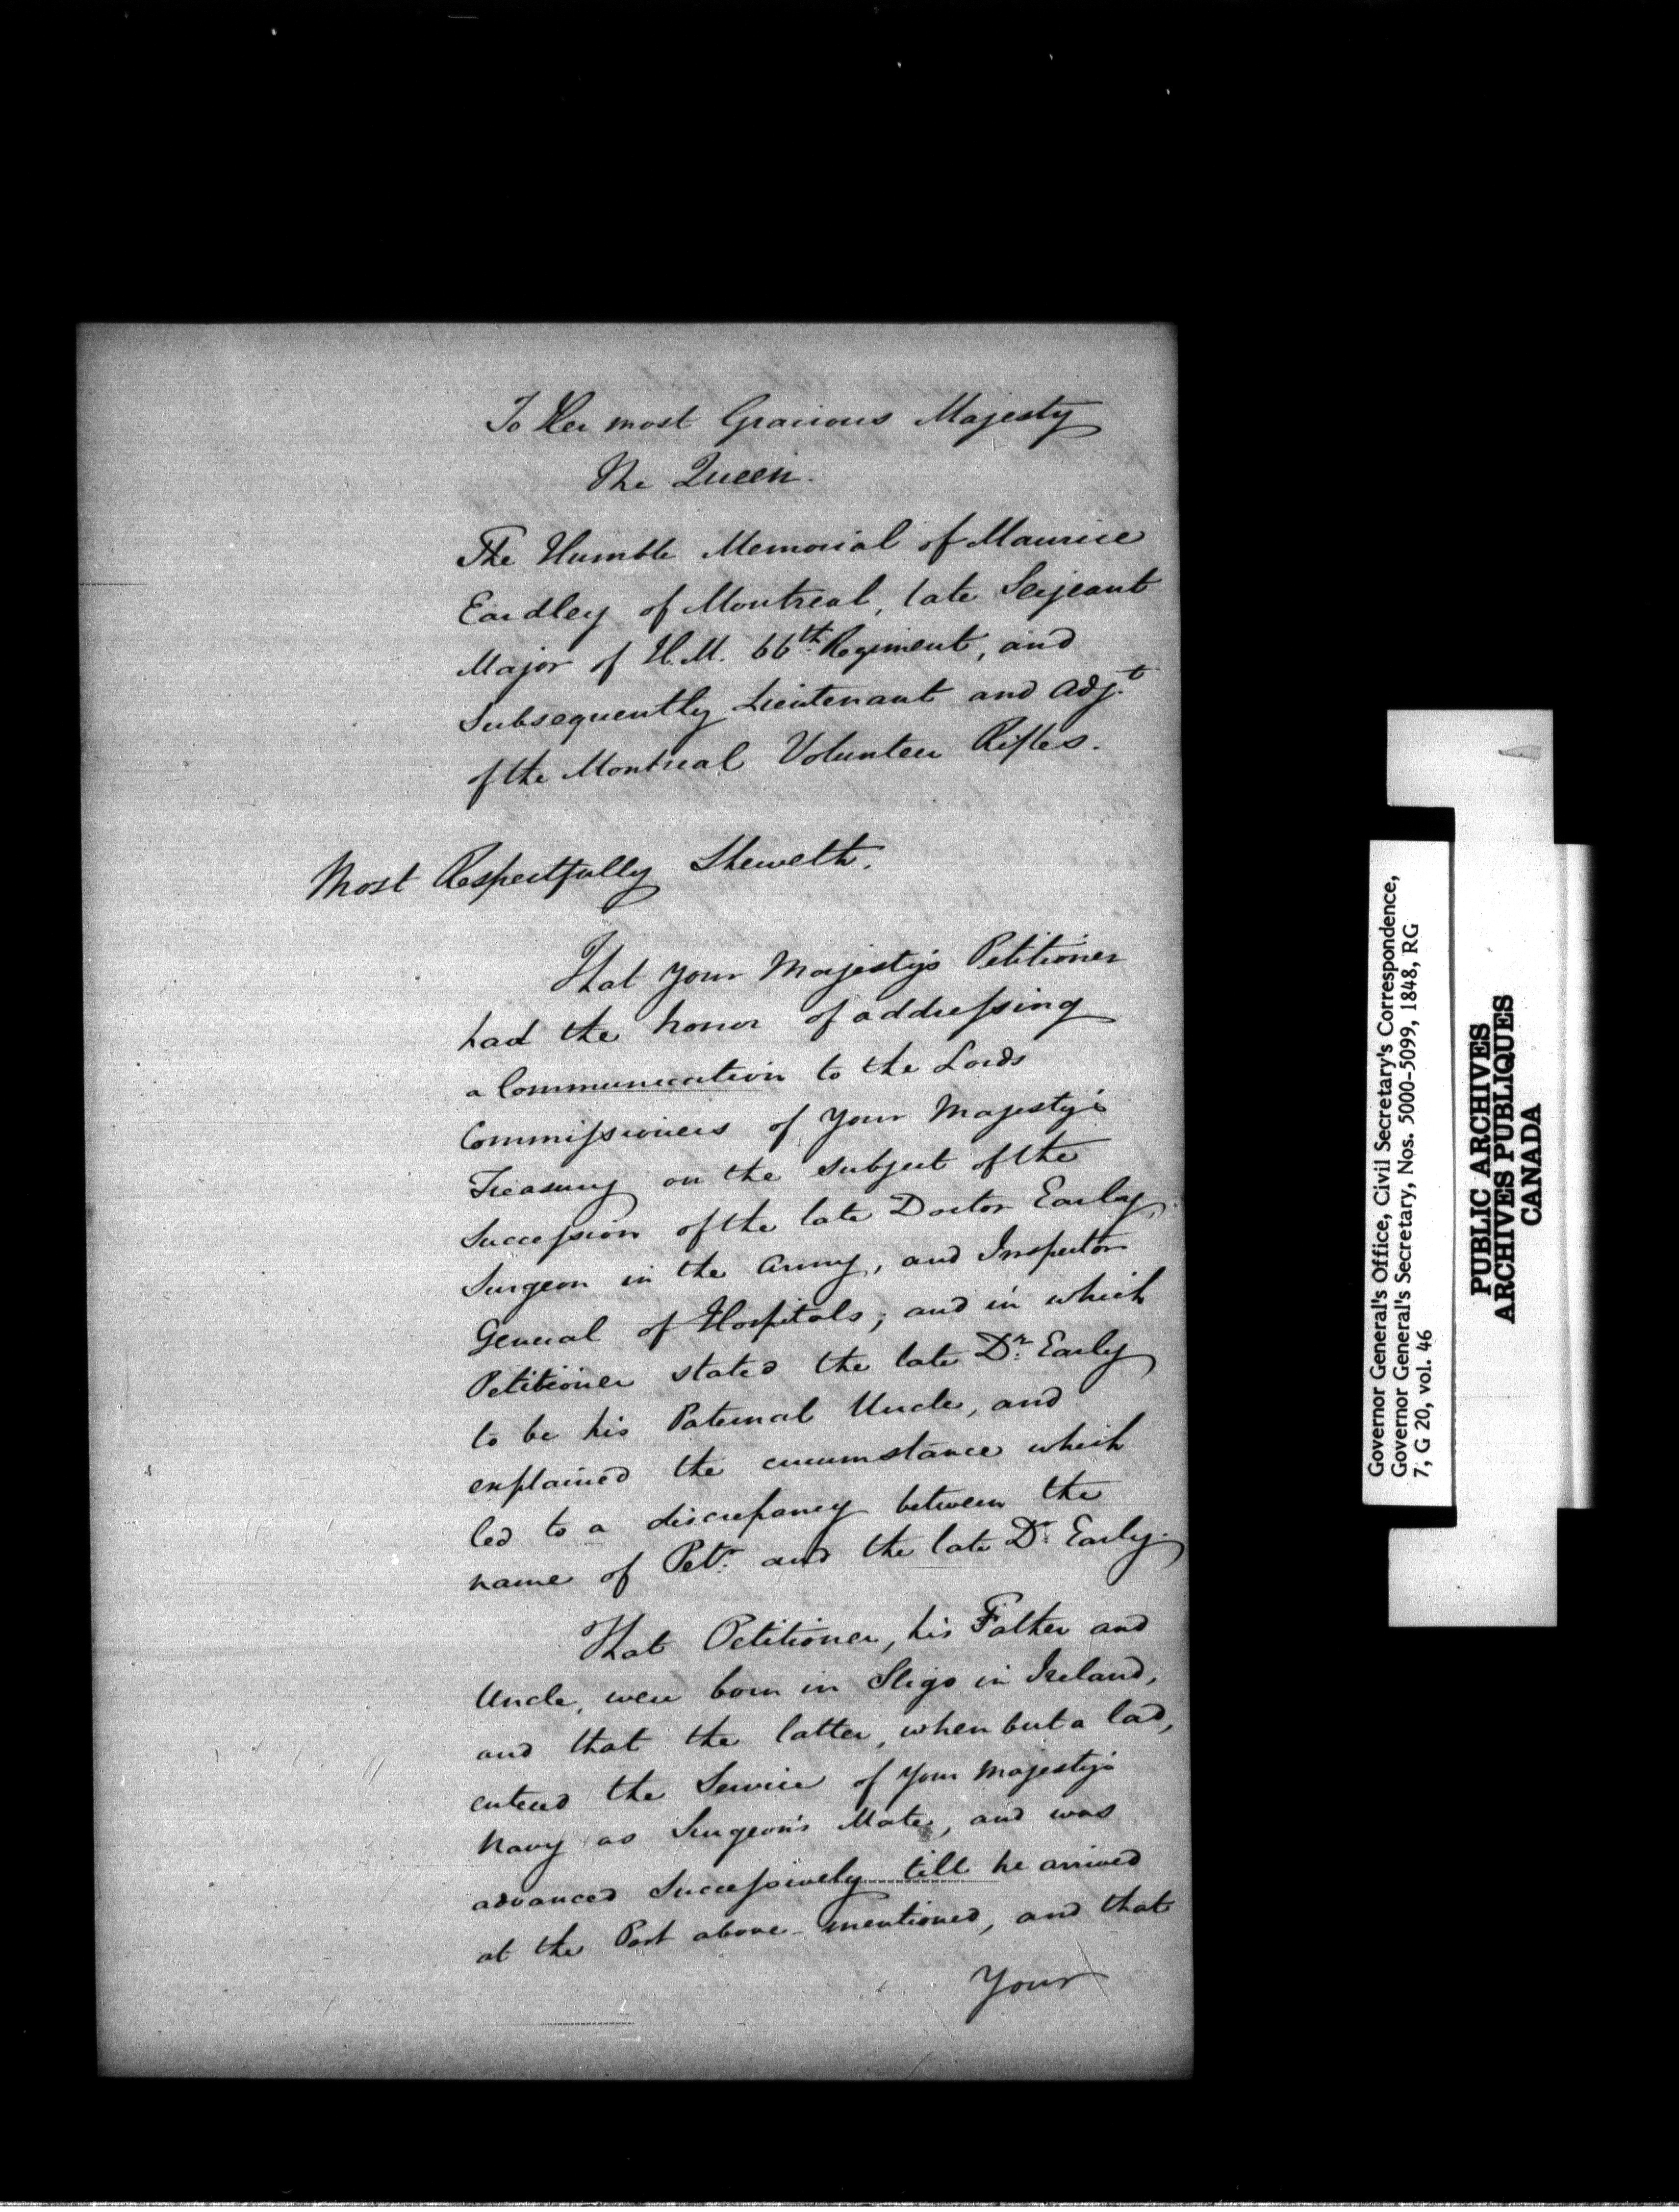 To Her most Gracious Majesty
The Queen.
The Humble Memorial of Maurice
Eardley of Montreal, late Serjeant
Major of H.M. 66th Regiment, and
Subsequently Lieutenant and Adjt
of the Montreal Volunteer Rifles.
Most Respectfully Sheweth.
That your Majesty's Petitioner
had the honor of addressing
a Communication to the Lords
Commissioners of your Majesty's
Treasury on the subject of the
Succession of the late Doctor Early,
Surgeon in the Army, and Inspector
General of Hospitals; and in which
Petitioner stated the late Dr. Early
to be his Paternal Uncle, and
explained the circumstance which
led to a discrepancy between the
name of Petr. and the late Dr. Early.
That Petitioner, his Father and
Uncle, were born in Sligo in Ireland,
and that the latter, when but a lad,
entered the Service of your Majesty's
Navy as Surgeon's Mate, and was
advanced Successively till he arrived
at the Post above-mentioned, and that
Your
Governor General's Office, Civil Secretary's Correspondence,
Governor General's Secretary, Nos. 5000-5099, 1848, RG
7, G 20, vol. 46
PUBLIC ARCHIVES
ARCHIVES PUBLIQUES
CANADA